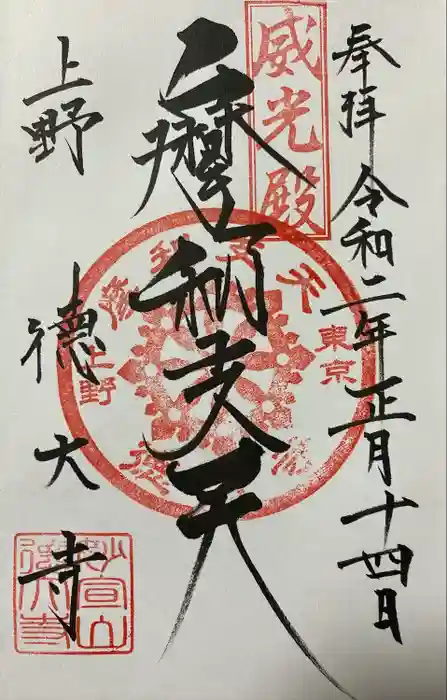 奉拝 令和二年正月十四日
威光殿
摩利支天
上野 徳大寺
東京
上野